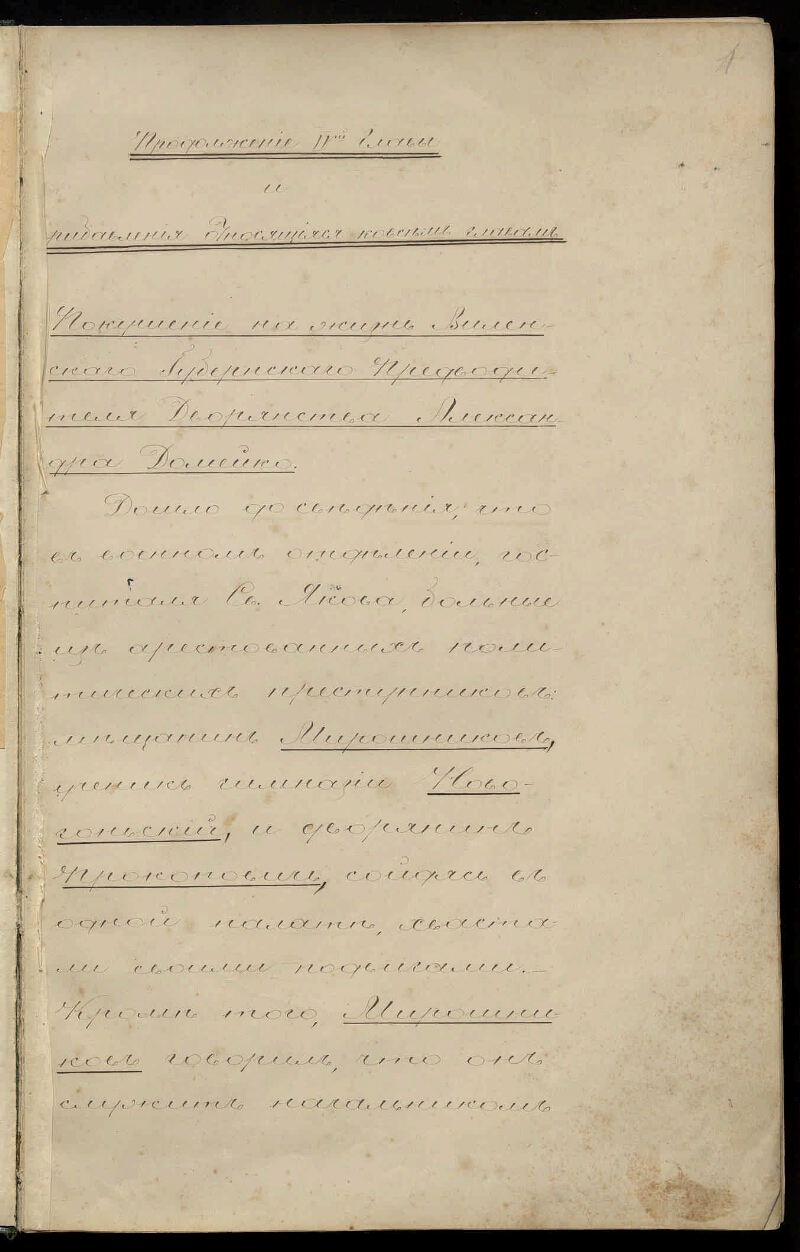 1
Продолженіе IIой Главы
и
ридавленія Относящіяся ковсѣмъ главамъ
Покушеніе на жизнь Вилен-
скаго Губернскаго Предводи-
теля Дворянства Алексан-
дра Домейко.
Дошло до свѣдѣнія, что
въ военномъ отдѣленіи, гос-
питаля Св. Якова, больные
изъ арестованныхъ поли-
тическихъ преступниковъ:
мѣщанинъ Мирошниковъ,
ученикъ гимназіи Ново-
гоньскій, и дворянинъ
Прокоповичъ, сойдясь въ
одной палатѣ, хваста-
ли своими подвигами.—
Кромѣ того, Мирошни-
ковъ говорилъ, что онъ
служитъ начальникомъ